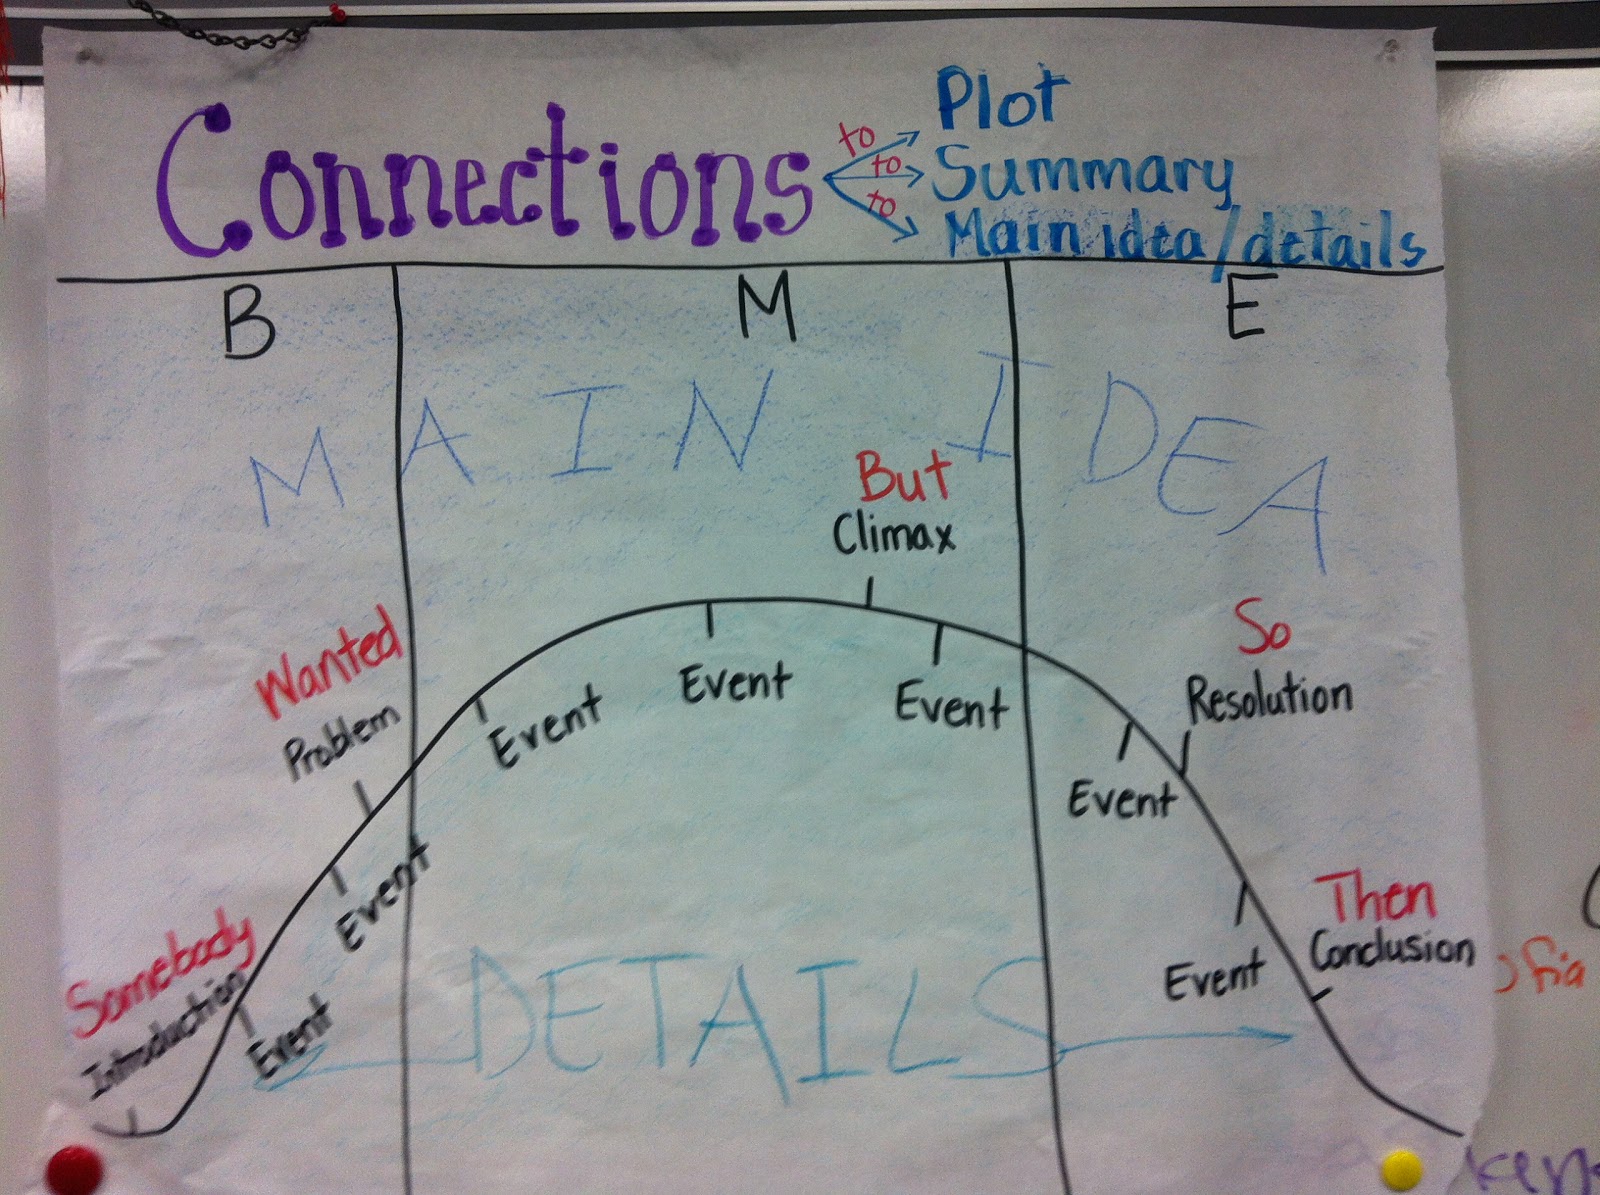 Connections
to Plot
to Summary
to Main idea/details
B M E
MAIN IDEA
Somebody
Introduction
Event
Event
Wanted
Problem
Event
Event
But
Climax
Event
So
Resolution
Event
Event
Then
Conclusion
DETAILS